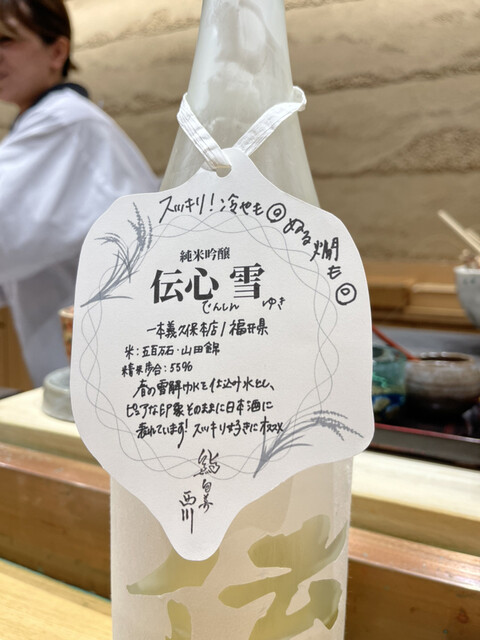 スッキリ！冷やも◎ ぬる燗も◎
純米吟醸
伝心 雪
でんしん ゆき
一本義久保本店/福井県
米:五百万石・山田錦
精米歩合:55%
春の雪解け水を仕込み水とし、
ピュアな印象そのままに日本酒に
表れています！スッキリ好きにオススメ
鮨
西川
伝